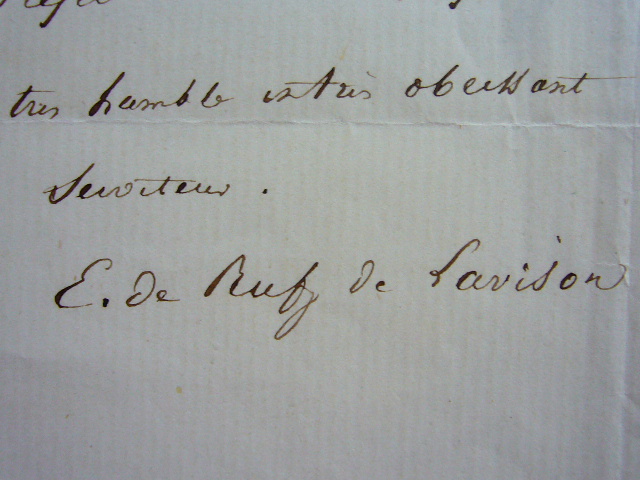 très humble et très obeissant
Serviteur.
E. de Rufz de Lavison